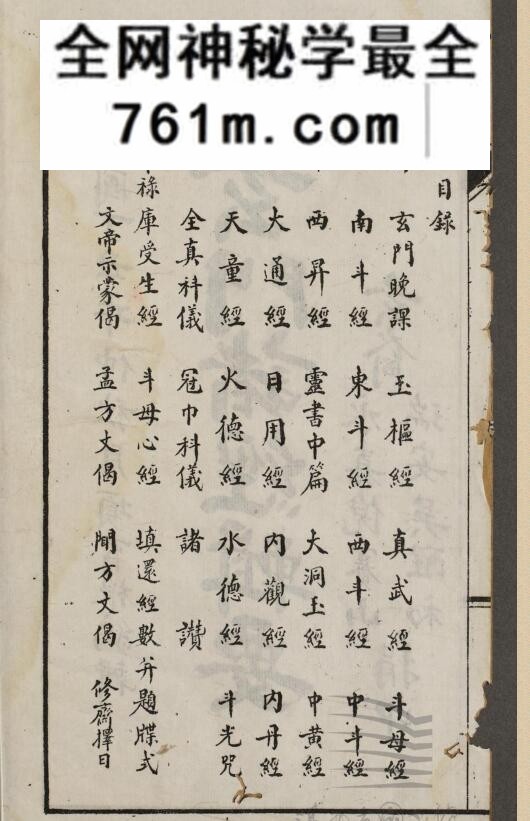 全网神秘学最全
761m.com
目録
玄門晚課 玉樞經 真武經 斗母經
南斗經 東斗經 西斗經 中斗經
西昇經 靈書中篇 大洞玉經 中黄經
大通經 日用經 内觀經 内丹經
天童經 火德經 水德經 斗光咒
全真科儀 冠巾科儀 諸讃
禄庫受生經 斗母心經 填還經數并題牒式
文帝示蒙偈 孟方丈偈 聞方丈偈 修齋擇日